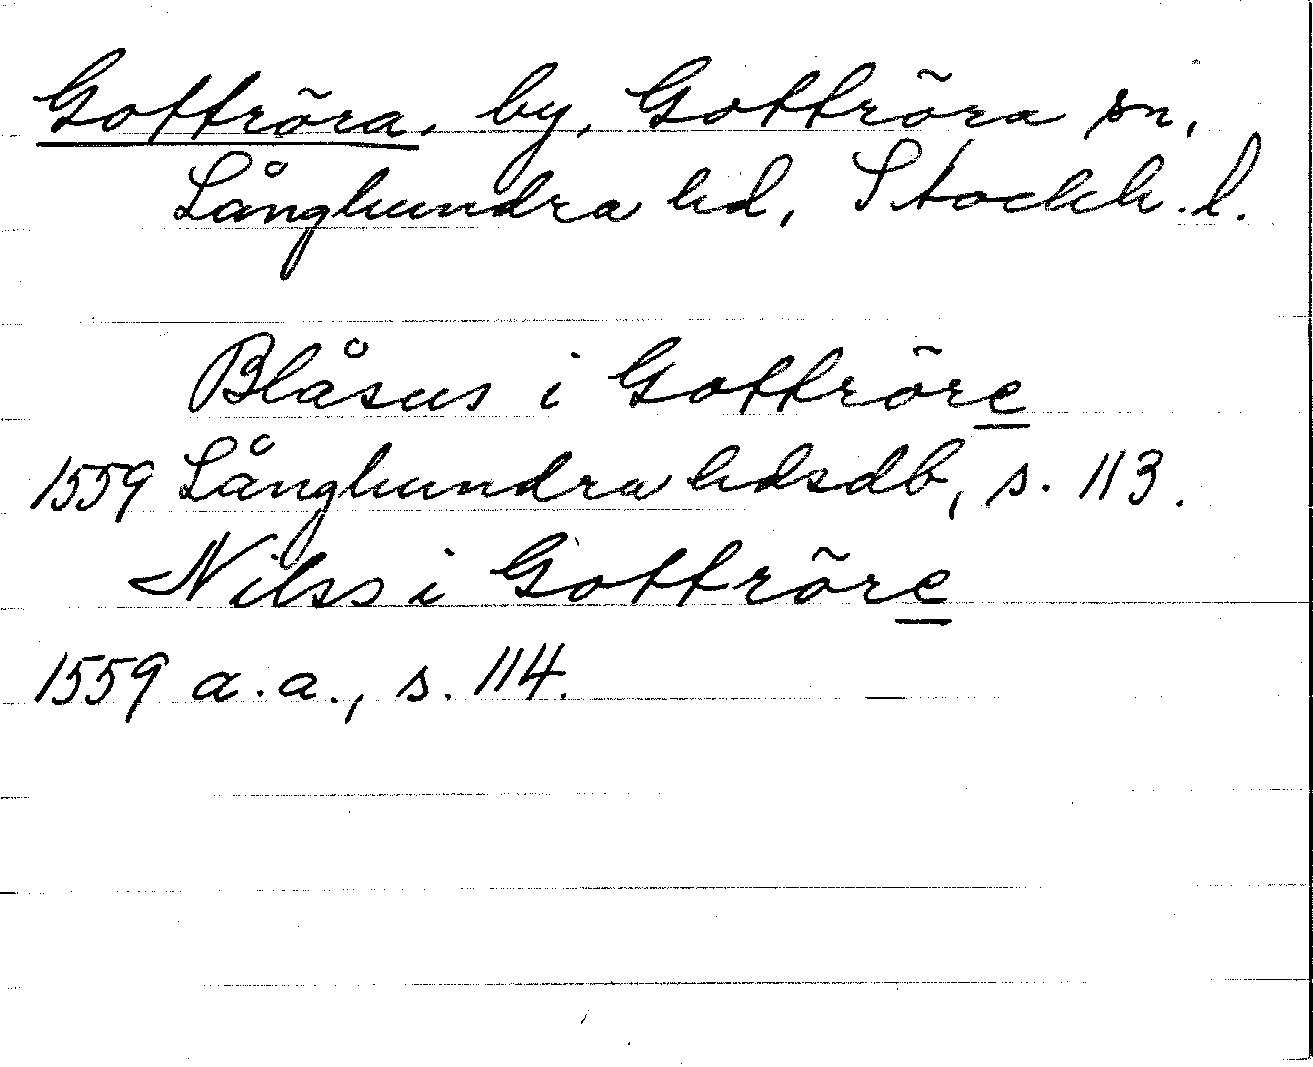 Gottröra, by, Gottröra sn,
Långhundra hd, Stockh. l.
Blåsus i Gottröre
1559 Långhundra hdsdb, s. 113.
Nilss i Gottröre
1559 a.a., s. 114.